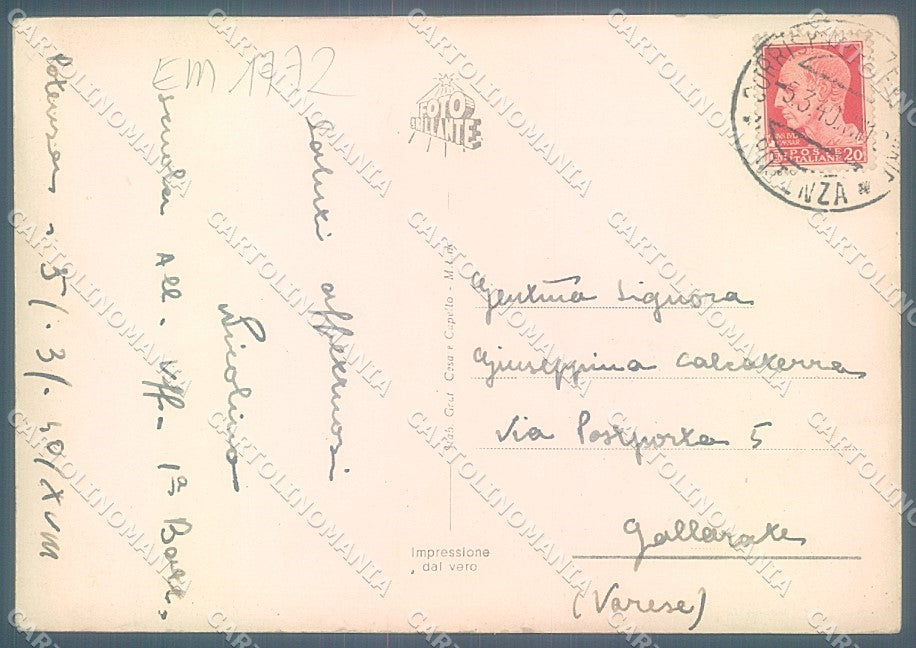 EM 1772
Potenza - 5/. 3/. 40/XVIII
Scuola All. Uff. 1ª Batt.
Saluti affettuosi
Nicolino
FOTO
BRILLANTE
Stab. Graf. Cesa e Capello - Milano
Impressione
dal vero
POTENZA
5.3.40
POSTE
ITALIANE 20
Gentma Signora
Giuseppina Calcaterra
Via Postporta 5
Gallarate
(Varese)
CARTOLINOMANIA